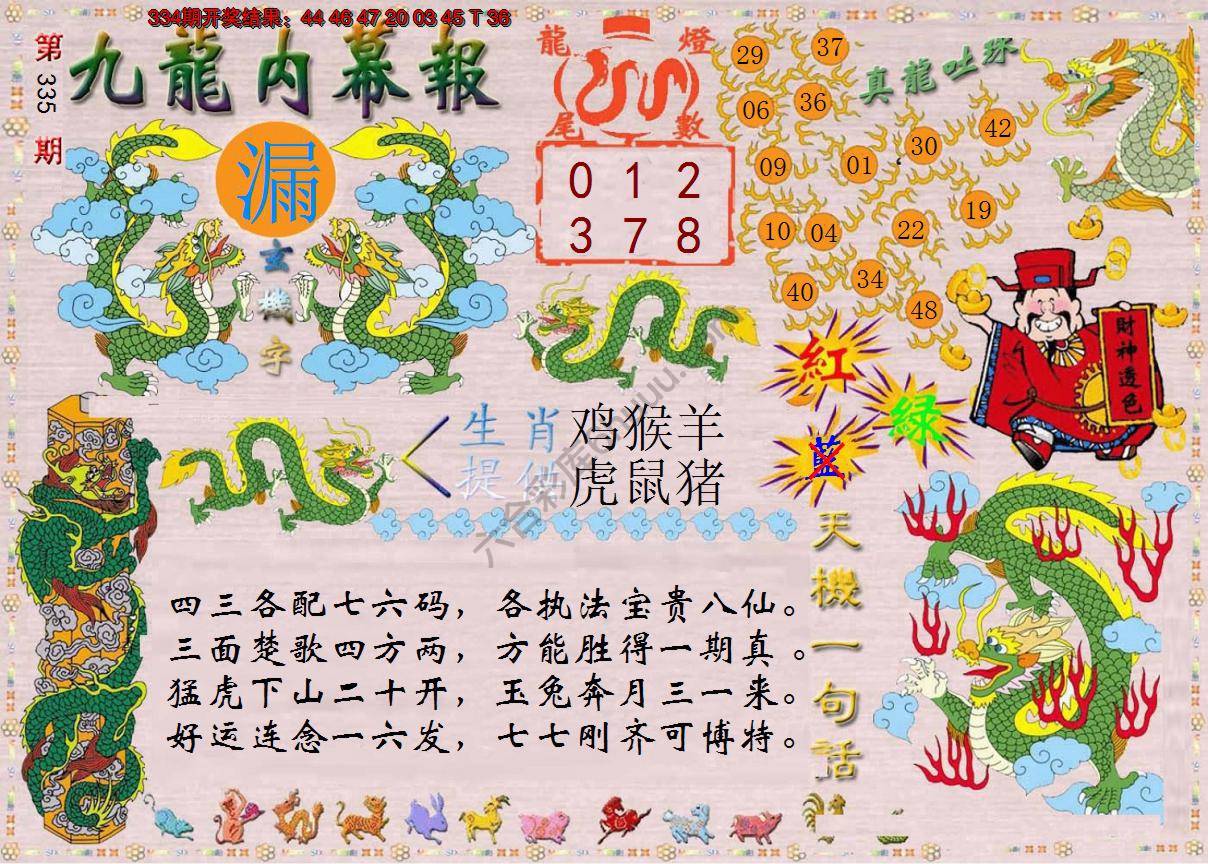 334期开奖结果：44 46 47 20 03 45 T 36
第335期
九龍内幕報
漏
玄機字
龍燈
尾數
0 1 2
3 7 8
真龍吐珠
29 37
06 36
09 01 30 42
10 04 22 19
40 34 48
紅
綠
藍
財神透色
生肖 鸡猴羊
提供 虎鼠猪
四三各配七六码，各执法宝贵八仙。
三面楚歌四方两，方能胜得一期真。
猛虎下山二十开，玉兔奔月三一来。
好运连念一六发，七七刚齐可博特。
天機一句話